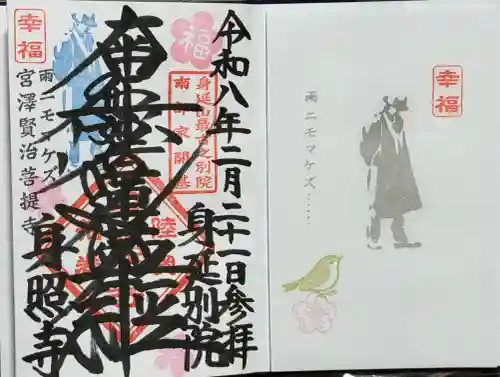 令和八年二月二十一日参拝
福
身延山最古之別院
南部家開基
身延別院
南無妙法蓮華経
幸福
雨ニモマケズ
宮澤賢治菩提寺
身照寺
幸福
雨ニモマケズ……